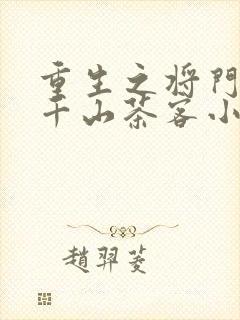 重生之将门
千山茶客小
趙羿菱